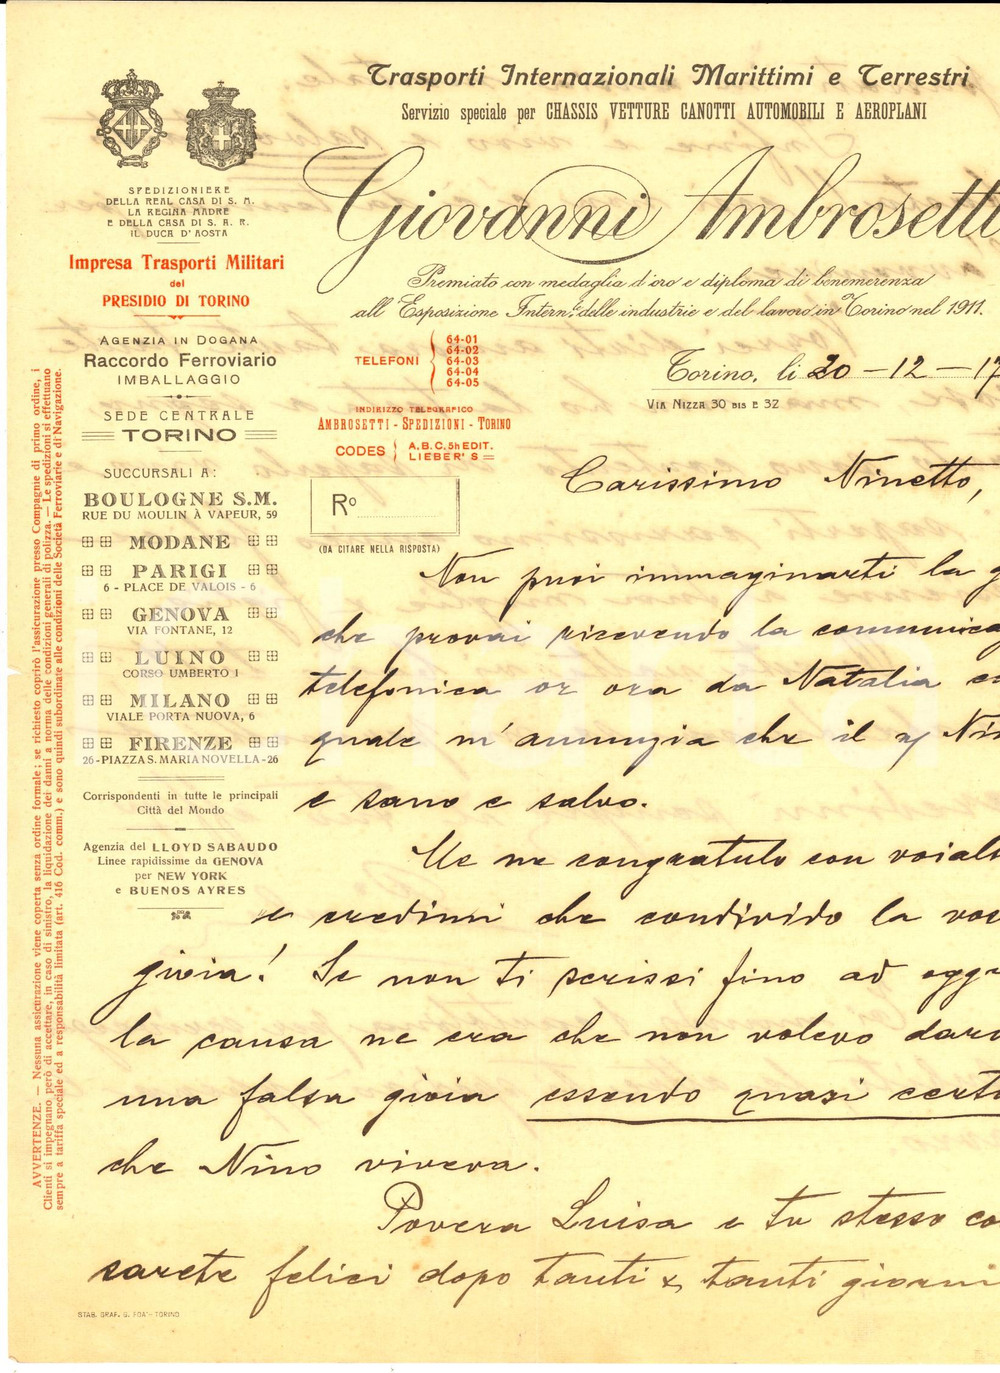 Trasporti Internazionali Marittimi e Terrestri
Servizio speciale per CHASSIS VETTURE CANOTTI AUTOMOBILI E AEROPLANI
Giovanni Ambrosetti
Premiato con medaglia d'oro e diploma di benemerenza
all'Esposizione Intern.le delle industrie e del lavoro in Torino nel 1911.
SPEDIZIONIERE
DELLA REAL CASA DI S. M.
LA REGINA MADRE
E DELLA CASA DI S. A. R.
IL DUCA D'AOSTA
Impresa Trasporti Militari
del
PRESIDIO DI TORINO
AGENZIA IN DOGANA
Raccordo Ferroviario
IMBALLAGGIO
SEDE CENTRALE
TORINO
SUCCURSALI A:
BOULOGNE S.M.
RUE DU MOULIN À VAPEUR, 59
MODANE
PARIGI
6 - PLACE DE VALOIS - 6
GENOVA
VIA FONTANE, 12
LUINO
CORSO UMBERTO I
MILANO
VIALE PORTA NUOVA, 6
FIRENZE
26-PIAZZA S. MARIA NOVELLA-26
Corrispondenti in tutte le principali
Città del Mondo
Agenzia del LLOYD SABAUDO
Linee rapidissime da GENOVA
per NEW YORK
e BUENOS AYRES
AVVERTENZE. — Nessuna assicurazione viene coperta senza ordine formale; se richiesto coprirò l'assicurazione presso Compagnie di primo ordine, i
Clienti si impegnano però di accettare, in caso di sinistro, la liquidazione dei danni a norma delle condizioni generali di polizza. — Le spedizioni si effettuano
sempre a tariffa speciale ed a responsabilità limitata (art. 416 Cod. comm.) e sono quindi subordinate alle condizioni delle Società Ferroviarie e di Navigazione.
TELEFONI
64-01
64-02
64-03
64-04
64-05
INDIRIZZO TELEGRAFICO
AMBROSETTI - SPEDIZIONI - TORINO
CODES
A.B.C. 5h EDIT.
LIEBER'S
Ro
(DA CITARE NELLA RISPOSTA)
Torino, li 20-12-17
VIA NIZZA 30 BIS E 32
Carissimo Ninetto,
Non puoi immaginarti la g
che provai ricevendo la comunica
telefonica or ora da Natalia co
quale m'annunzia che il Nin
e sano e salvo.
Me ne congratulo con voialt
e credimi che condivido la vos
gioia! Se non ti scrissi fino ad ogg
la causa ne era che non volevo dar
una falsa gioia essendo quasi certo
che Nino viveva.
Povera Luisa e tu stesso co
sarete felici dopo tanti e tanti giorni
STAB. GRAF. G. FOA' - TORINO